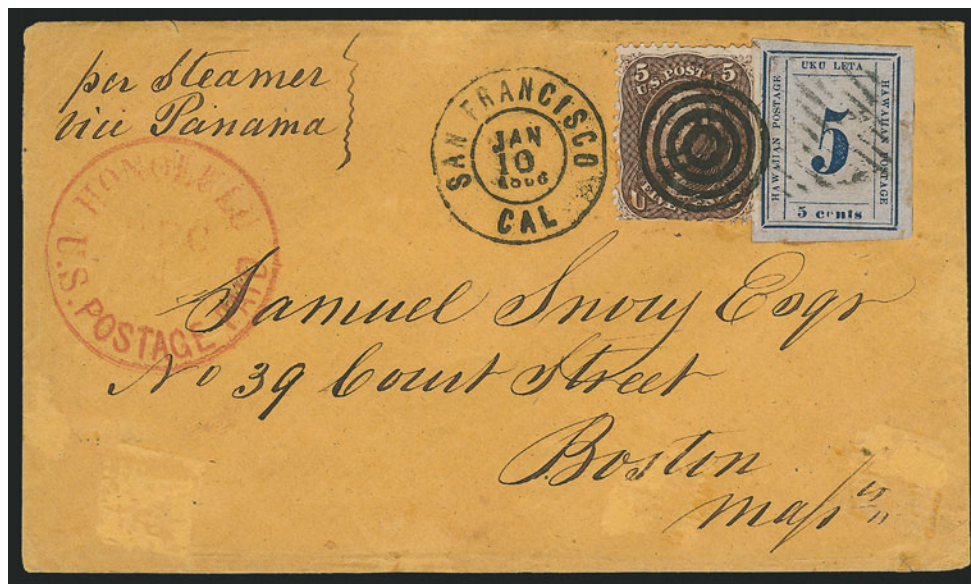 per Steamer
via Panama
SAN FRANCISCO
JAN
10
CAL
5 5
U.S. POSTAGE
UKU LETA
HAWAIIAN POSTAGE
5
HAWAIIAN POSTAGE
5 cents
HONOLULU
U.S. POSTAGE PAID
Samuel Esqr
No 39 Court Street
Boston
Mass